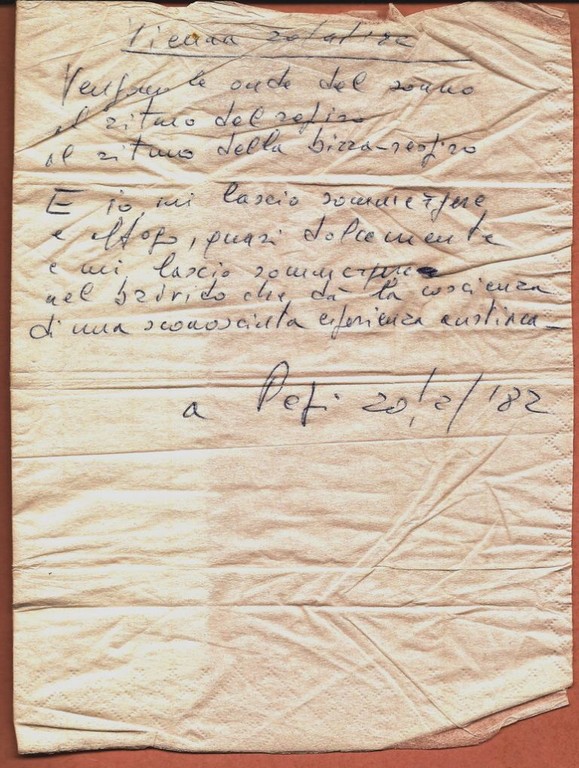 Vienna 20/4/'82
Vengono le onde del sonno
al ritmo del respiro
al ritmo della birra-respiro
E io mi lascio sommergere
e affogo, quasi dolcemente
e mi lascio sommergere
nel brivido che dà la coscienza
di una sconosciuta esperienza austriaca_
a Pepi 20/2/'82